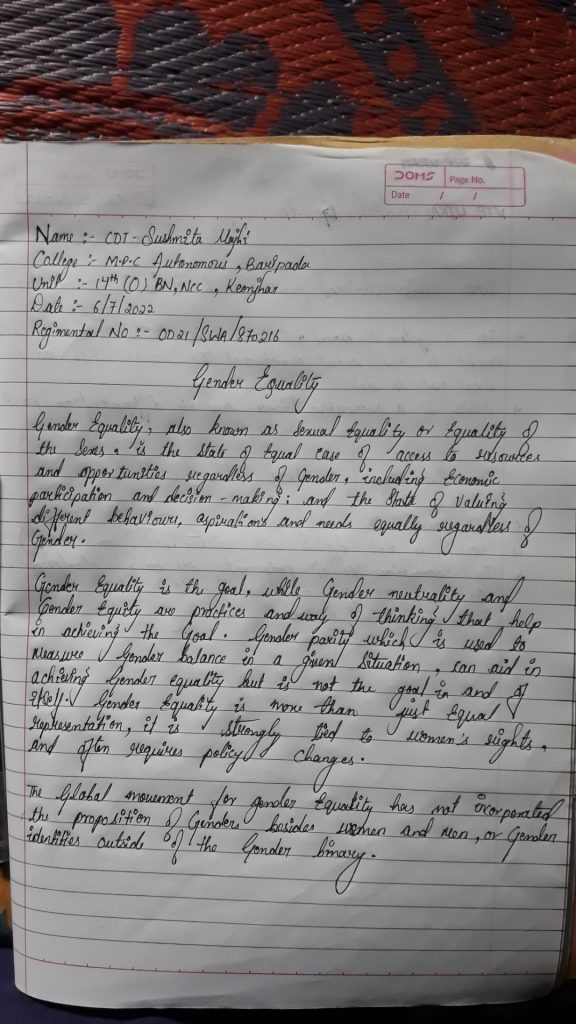 DOMS
Page No.
Date / /
Name :- CDT - Sushmita Majhi
College :- M.P.C Autonomous, Baripada
Unit :- 14th (O) BN, NCC, Keonjhar
Date :- 6/7/2022
Regimental No :- OD21/SWA/870216
Gender Equality
Gender Equality, also known as Sexual Equality or Equality of
the Sexes. is the State of Equal ease of access to resources
and opportunities regardless of Gender, including Economic
participation and decision-making; and the State of Valuing
different behaviours, aspirations and needs equally regardless of
Gender.
Gender Equality is th goal, while Gender neutrality and
Gender Equity are practices and way of thinking that help
in achieving the Goal. Gender parity which is used to
measure Gender balance in a given Situation, can aid in
achieving Gender equality but is not the goal in and of
itself. Gender Equality is more than just Equal
representation, it is strongly tied to women's rights,
and often requires policy changes.
The Global movement for gender Equality has not incorporated
the proposition of Genders besides women and men, or Gender
identities outside of the Gender binary.